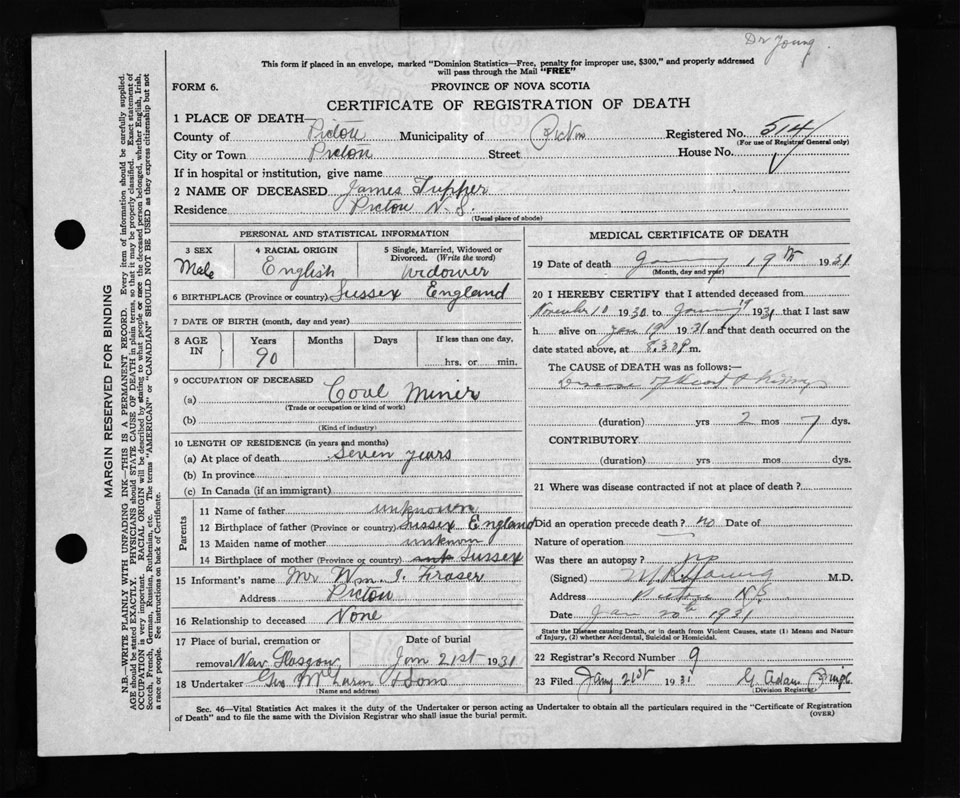 Dr Young
This form if placed in an envelope, marked "Dominion Statistics—Free, penalty for improper use, $300," and properly addressed
will pass through the Mail "FREE"
FORM 6.
PROVINCE OF NOVA SCOTIA
CERTIFICATE OF REGISTRATION OF DEATH
1 PLACE OF DEATH—
County of Pictou Municipality of Pictou Registered No. 514
(For use of Registrar General only)
City or Town Pictou Street House No.
If in hospital or institution, give name
2 NAME OF DECEASED James Tupper
Residence Pictou N.S.
(Usual place of abode)
PERSONAL AND STATISTICAL INFORMATION
3 SEX 4 RACIAL ORIGIN 5 Single, Married, Widowed or Divorced. (Write the word)
Male English Widower
6 BIRTHPLACE (Province or country) Sussex England
7 DATE OF BIRTH (month, day and year)
8 AGE IN Years Months Days If less than one day,
90 hrs. or min.
9 OCCUPATION OF DECEASED
(a) Coal Miner
(Trade or occupation or kind of work)
(b)
(Kind of industry)
10 LENGTH OF RESIDENCE (in years and months)
(a) At place of death Seven years
(b) In province
(c) In Canada (if an immigrant)
Parents
11 Name of father unknown
12 Birthplace of father (Province or country) Sussex England
13 Maiden name of mother unknown
14 Birthplace of mother (Province or country) Sussex
15 Informant's name Mr Wm. J. Fraser
Address Pictou
16 Relationship to deceased None
17 Place of burial, cremation or Date of burial
removal New Glasgow Jan 21st 1931
18 Undertaker Geo McLaren & Sons
(Name and address)
MEDICAL CERTIFICATE OF DEATH
19 Date of death January 19th 1931
(Month, day and year)
20 I HEREBY CERTIFY that I attended deceased from
November 10 1930 to January 19 1931 that I last saw
h alive on Jan 19 1931 and that death occurred on
date stated above, at 8.30 P m.
The CAUSE of DEATH was as follows:—
Disease of Heart & Kidneys
(duration) yrs 2 mos 7 dys.
CONTRIBUTORY
(duration) yrs mos dys.
21 Where was disease contracted if not at place of death?
Did an operation precede death? no Date of
Nature of operation
Was there an autopsy? no
(Signed) Young M.D.
Address Pictou N.S.
Date Jan 20th 1931
State the Disease causing Death, or in death from Violent Causes, state (1) Means and Nature
of Injury, (2) whether Accidental, Suicidal or Homicidal.
22 Registrar's Record Number 9
23 Filed Jany 21st 1931 G. Adam
(Division Registrar)
Sec. 46—Vital Statistics Act makes it the duty of the Undertaker or person acting as Undertaker to obtain all the particulars required in the "Certificate of Registration
of Death" and to file the same with the Division Registrar who shall issue the burial permit.
(OVER)
MARGIN RESERVED FOR BINDING
N.B.—WRITE PLAINLY WITH UNFADING INK—THIS IS A PERMANENT RECORD. Every item of information should be carefully supplied.
AGE should be stated EXACTLY. PHYSICIANS should STATE CAUSE OF DEATH in plain terms, so that it may be properly classified. Exact statement of
OCCUPATION is very important. RACIAL ORIGIN will be described by stating to what people or race the deceased person belonged, whether English, Irish,
Scotch, French, German, Russian, Ruthenian, etc. The terms "AMERICAN" or "CANADIAN" SHOULD NOT BE USED as they express citizenship but not
a race or people. See instructions on back of Certificate.